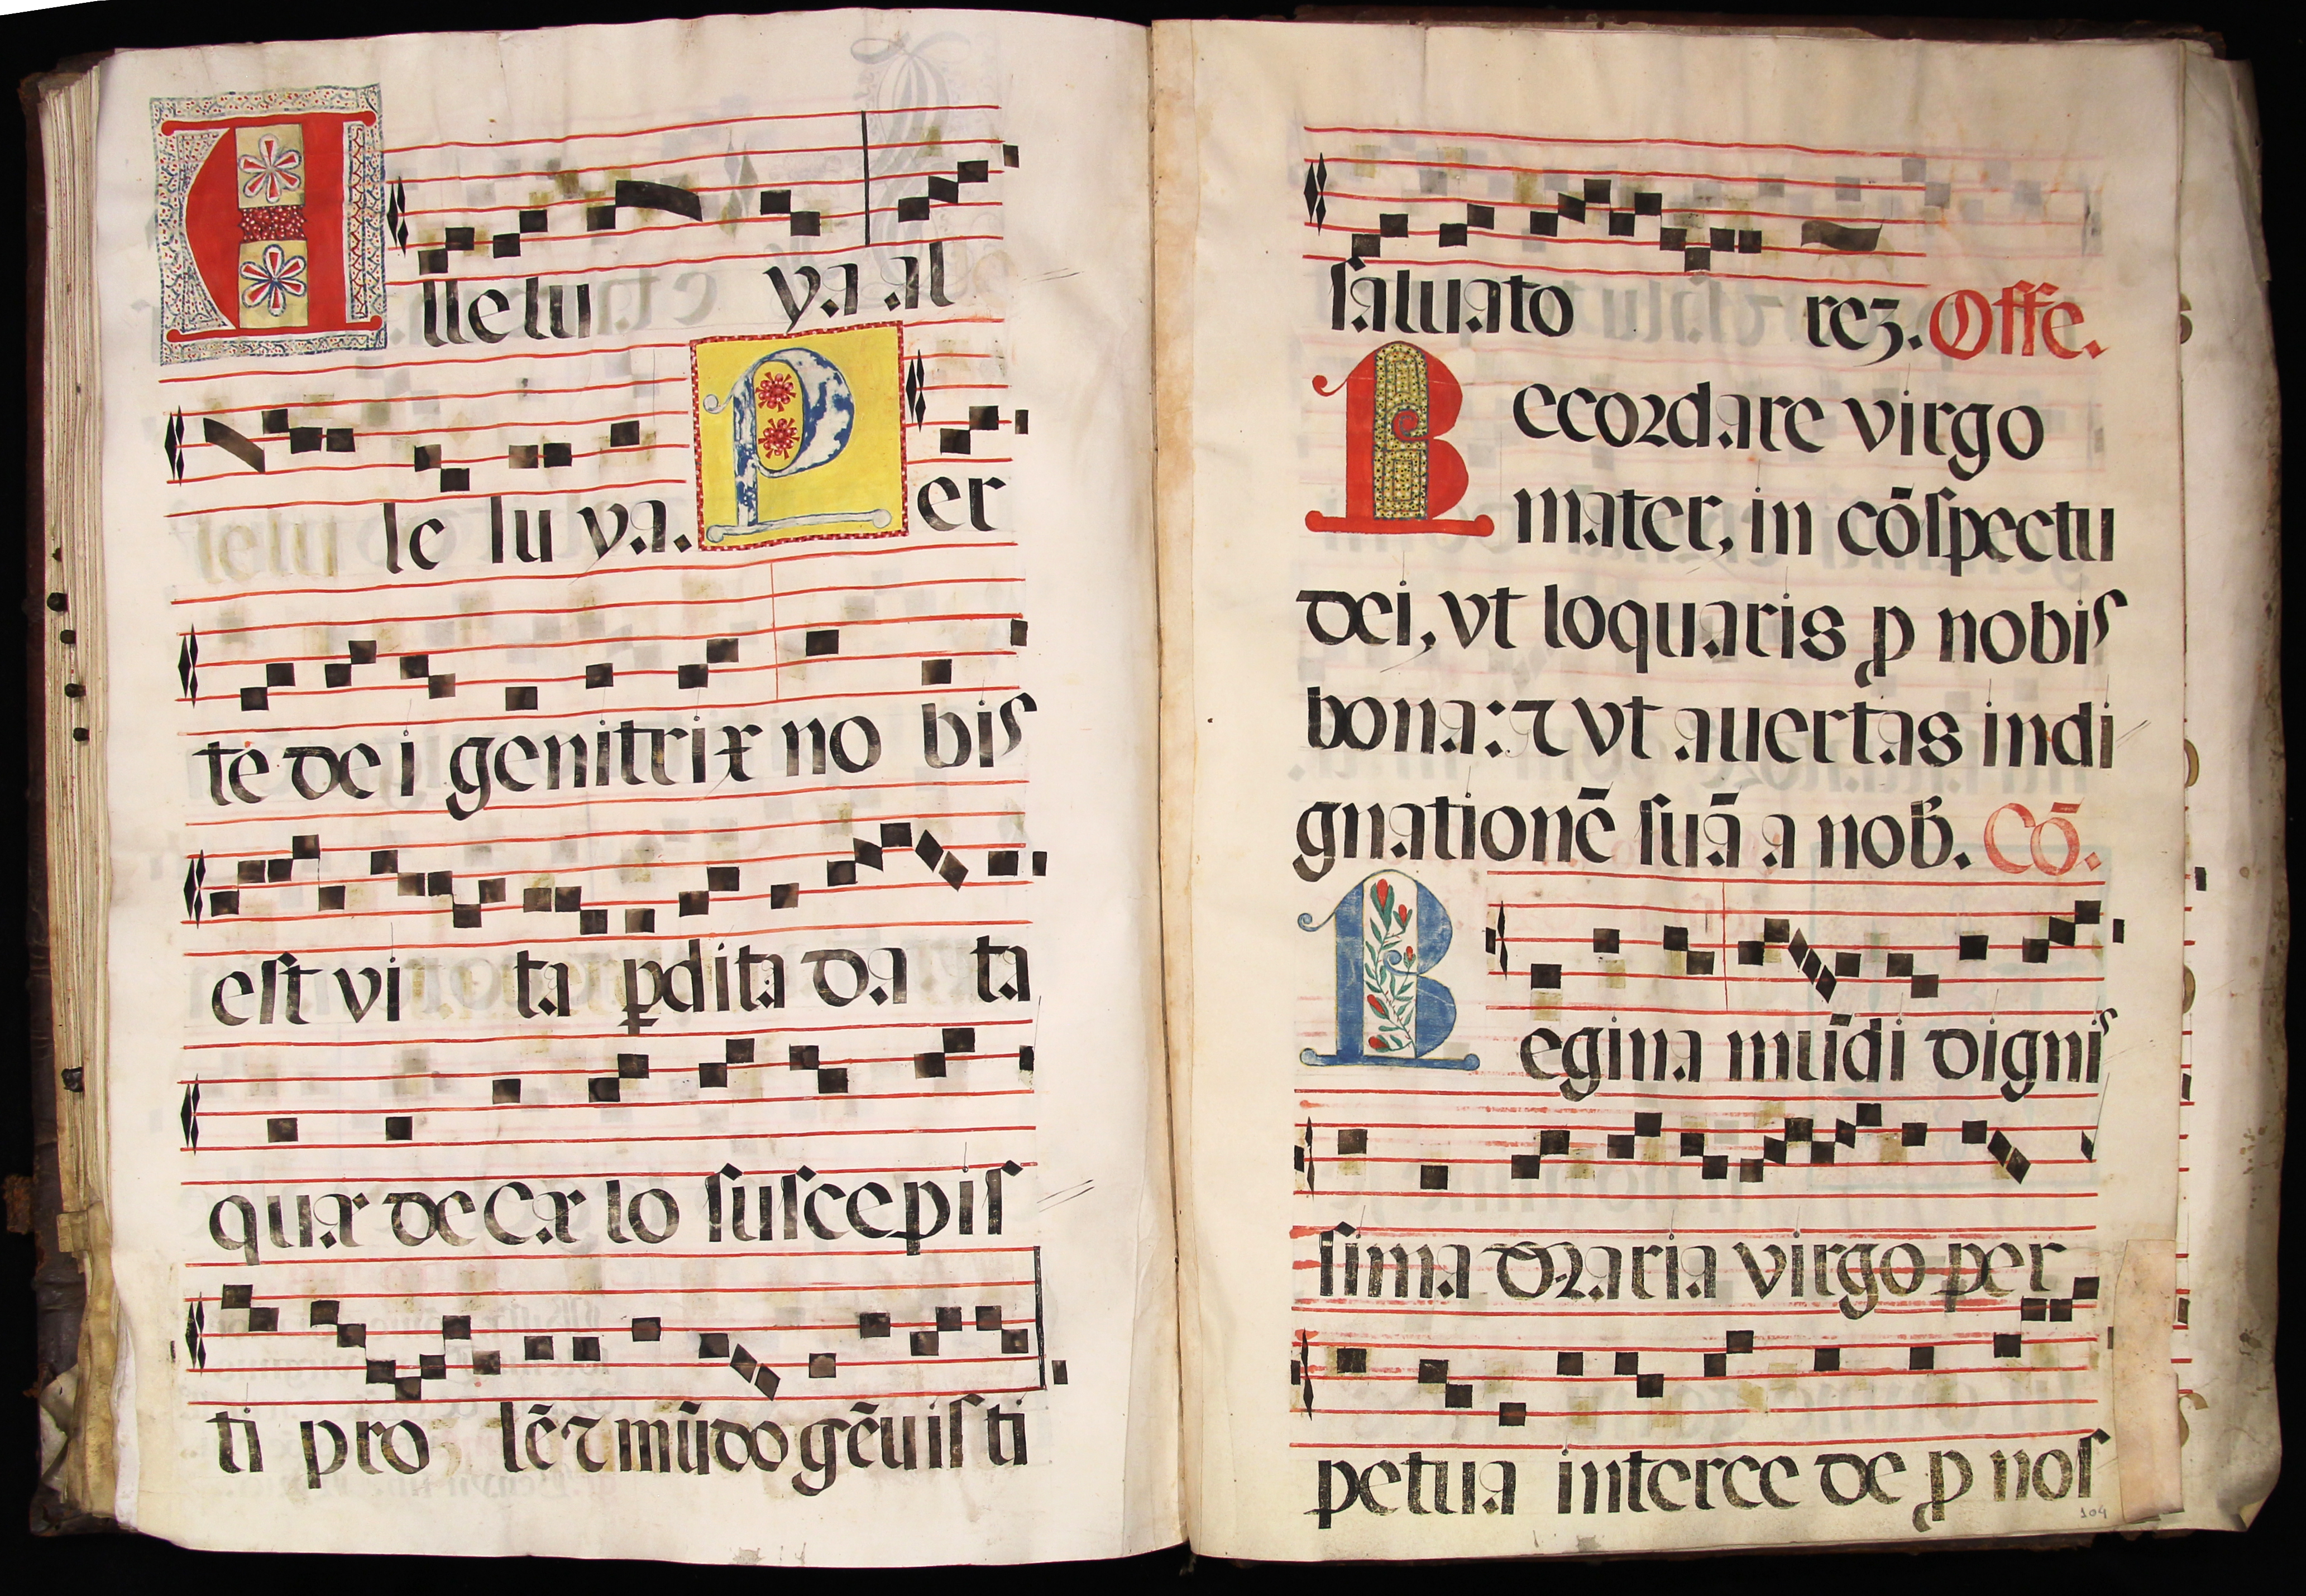 Alleluya al
le luya. Per
te dei genitrix no bis
est vi ta ꝑdita da ta
quæ de cælo suscepis
ti pro lē ⁊ mūdo gēuisti
saluato reʒ. Offe.
Recordare virgo
mater, in cōspectu
dei, vt loquaris ꝓ nobis
bona: ⁊ vt auertas indi
gnationē suā a nob̄. Cō.
Regina mūdi dignis
sima Maria virgo per
petua interce de ꝓ nos
104